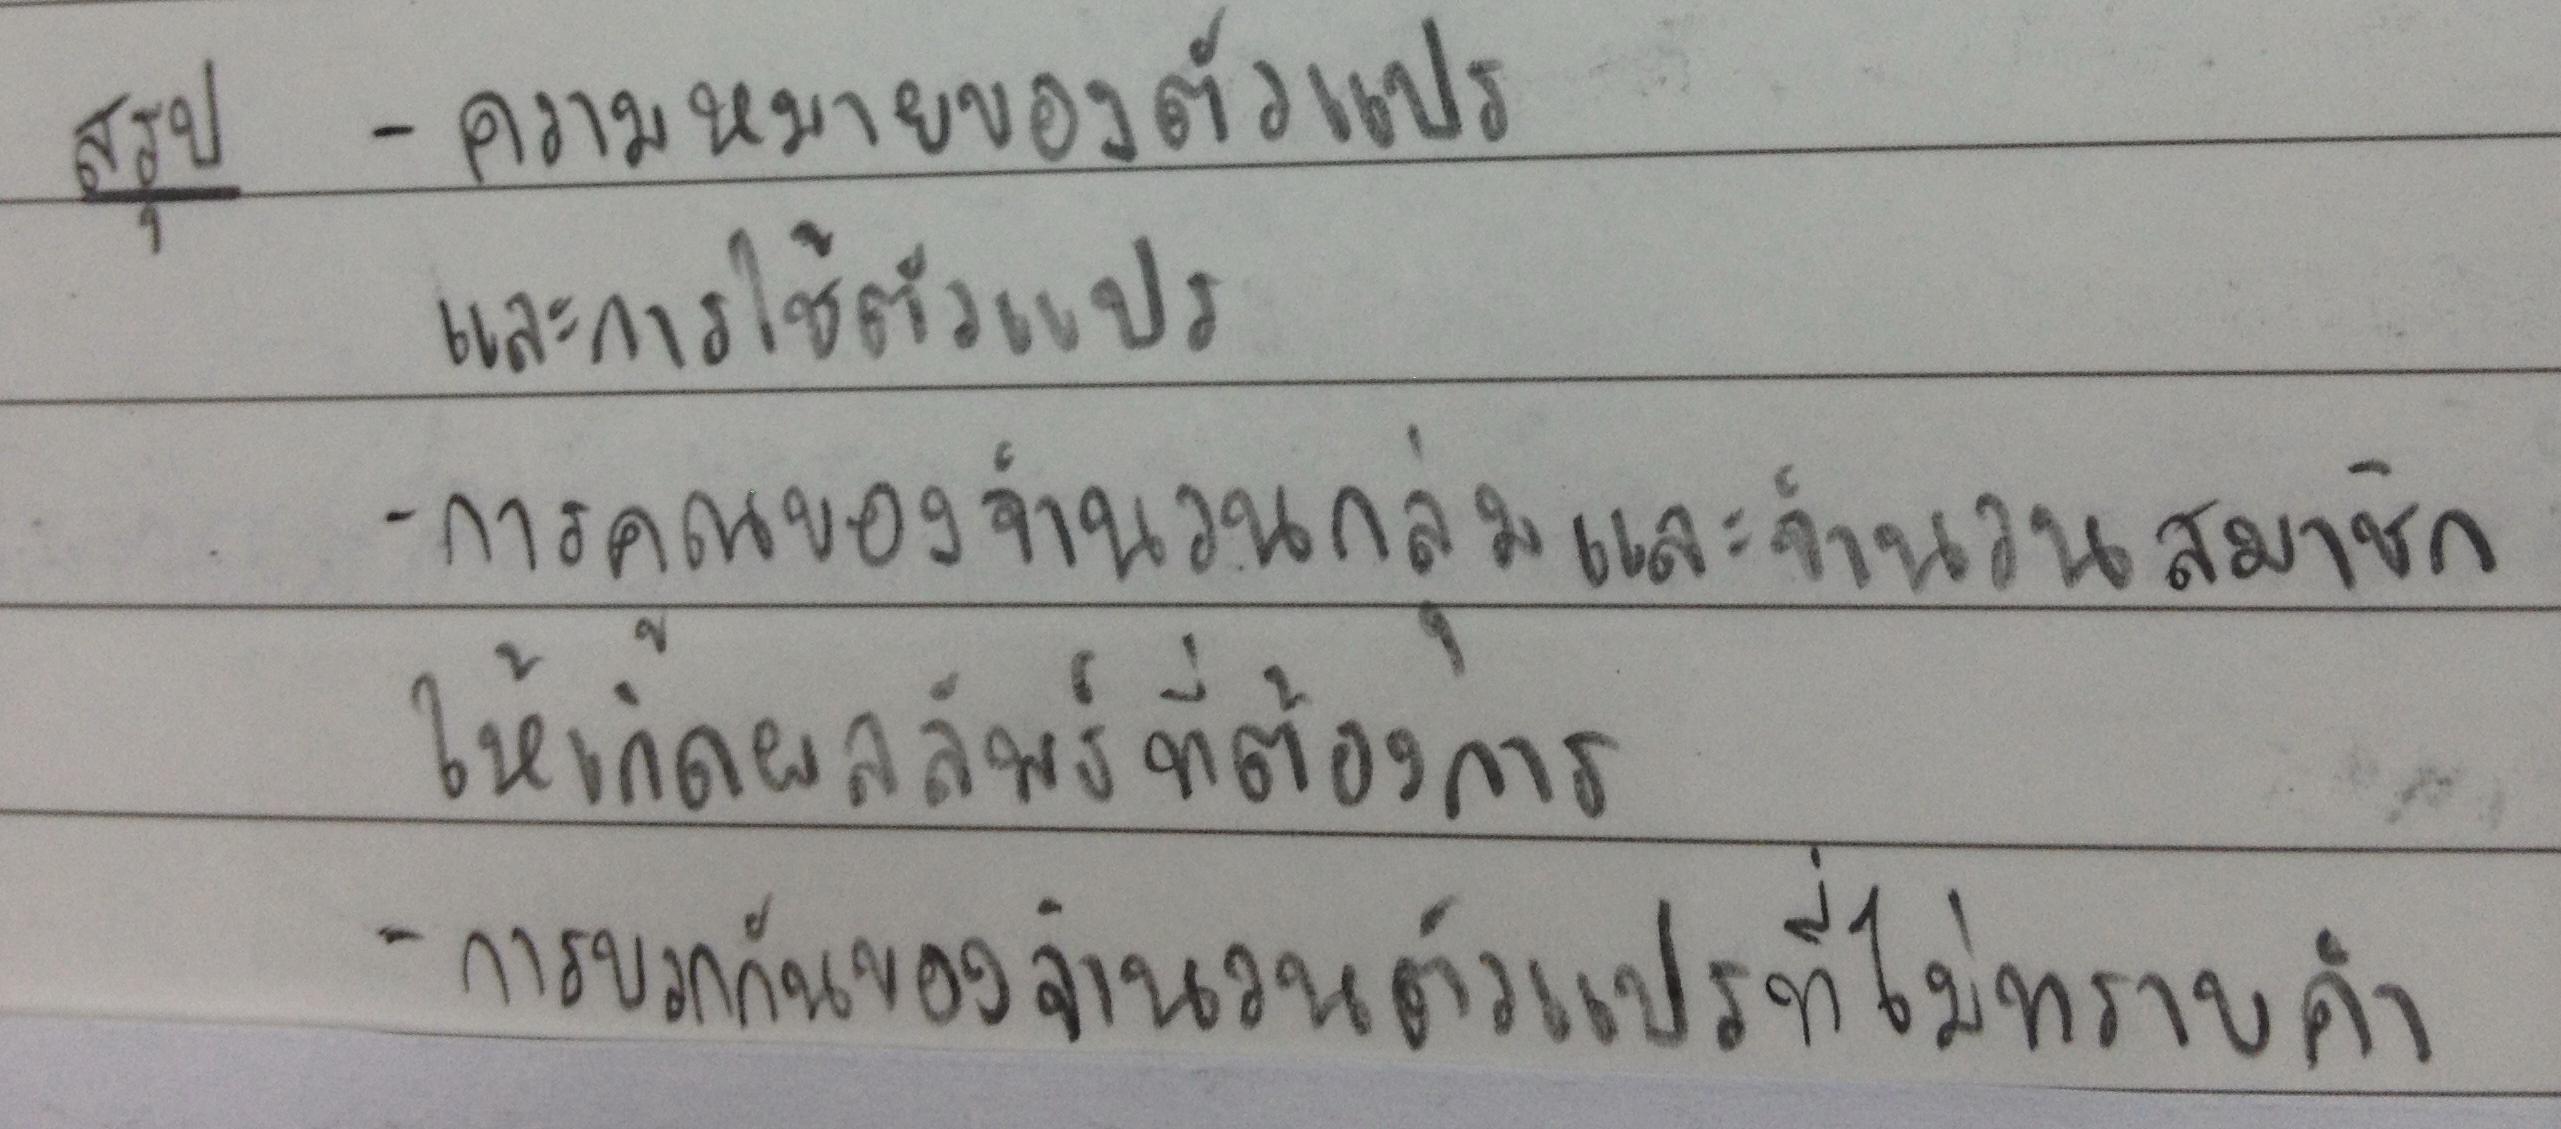 สรุป - ความหมายของตัวแปร
และการใช้ตัวแปร
- การคูณของจำนวนกลุ่ม และจำนวนสมาชิก
ให้เกิดผลลัพธ์ที่ต้องการ
- การบวกกันของจำนวนตัวแปรที่ไม่ทราบค่า